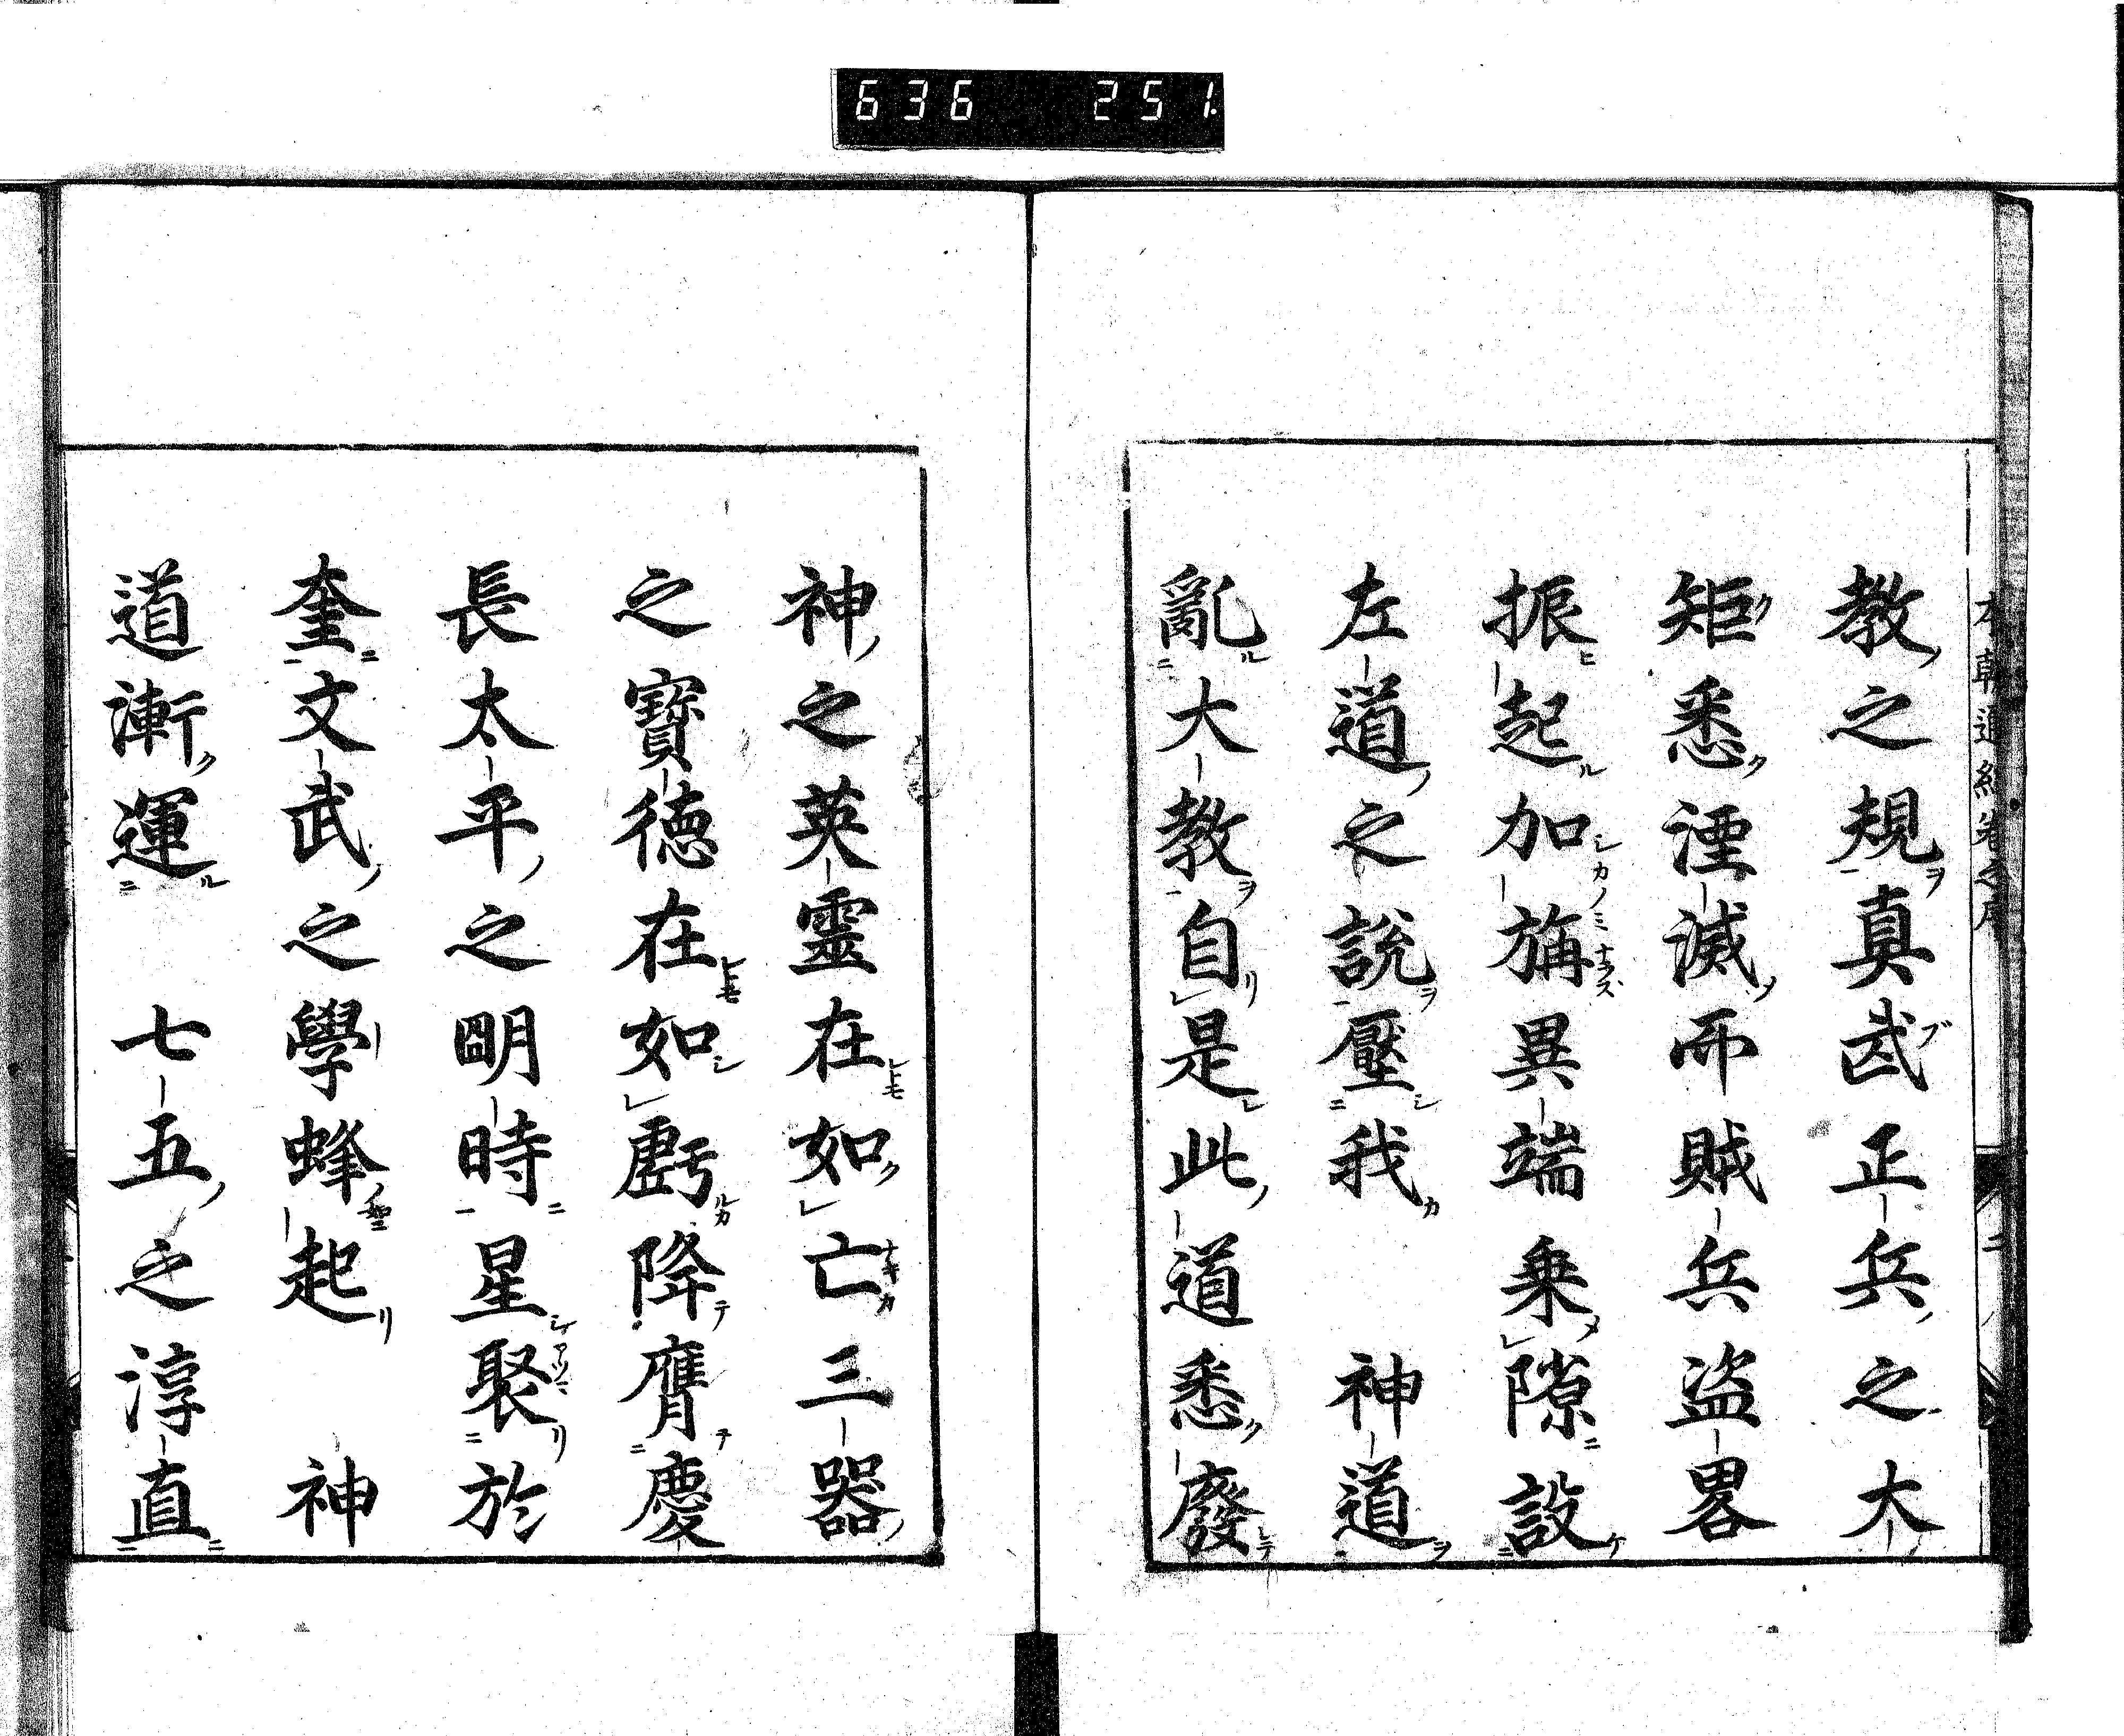 636 251
教之規真武正兵之大
矩悉湮滅而賊兵盗畧
振起加旃異端乗隙設
左道之說壓我 神道
亂大教自是此道悉廢
神之英靈在如亡三器
之寶德在如虧降膺慶
長太平之明時星聚於
奎文武之學蜂起 神
道漸運 七五之淳直